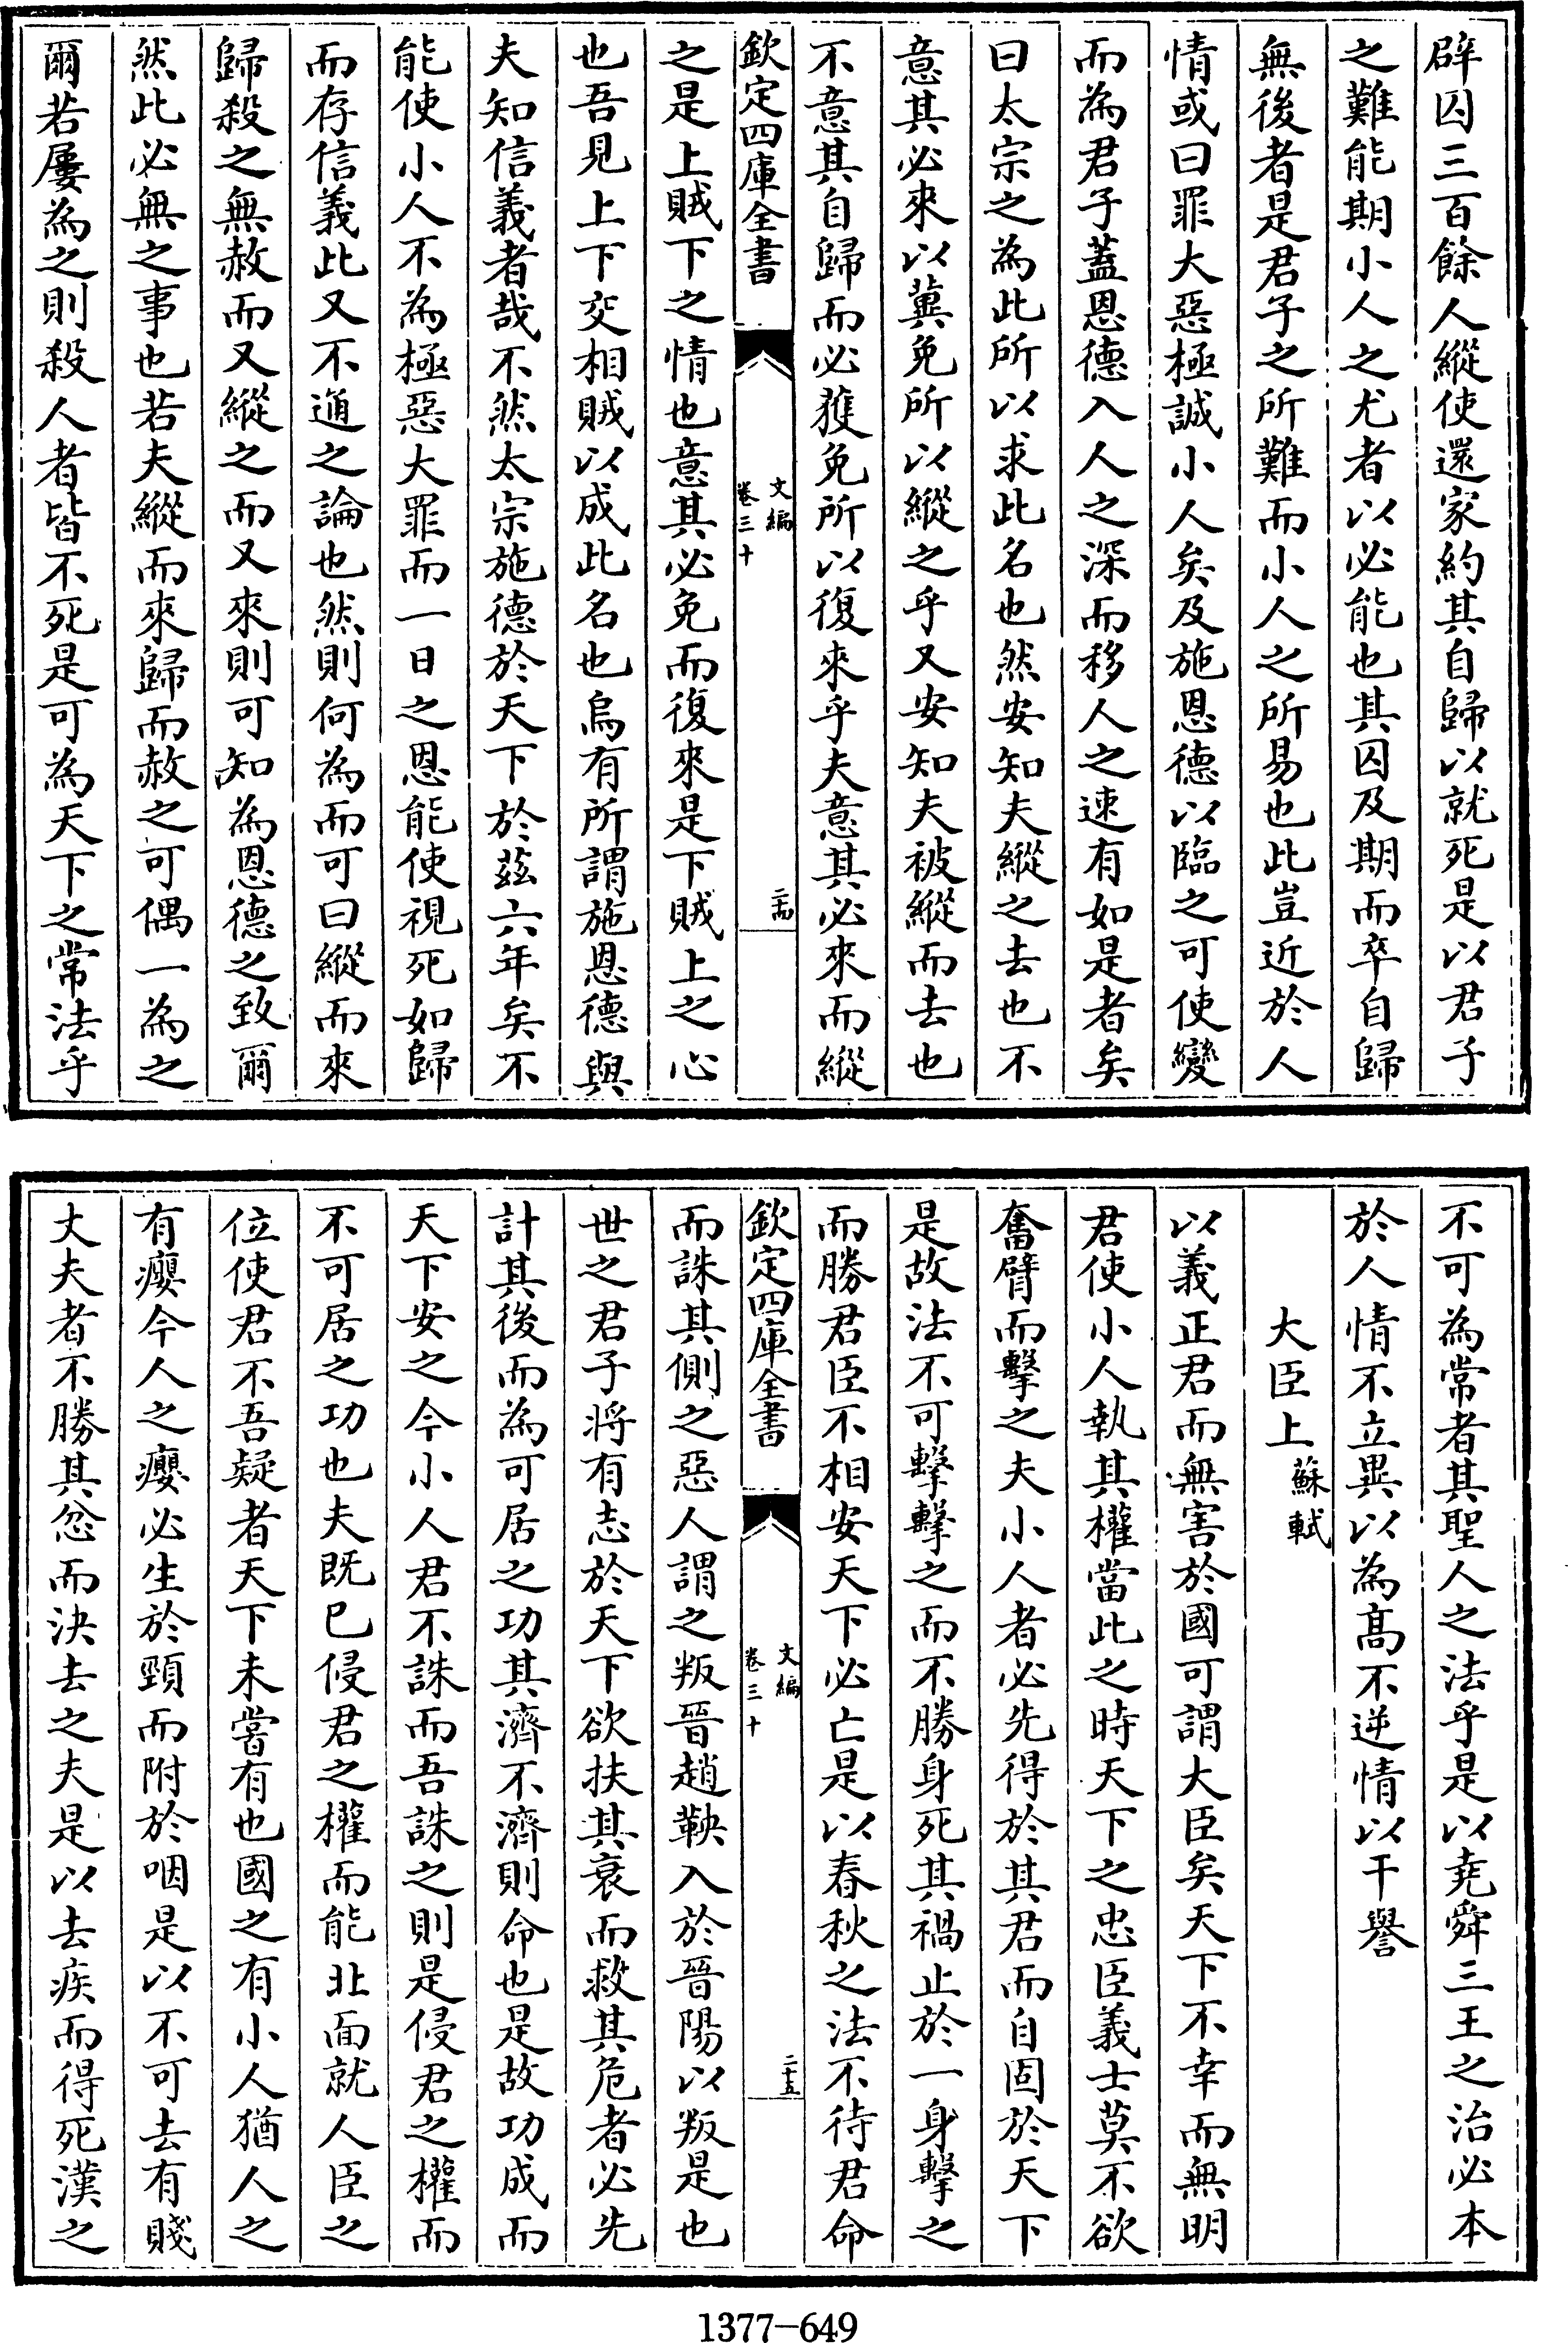 辟囚三百餘人縱使還家約其自歸以就死是以君子
之難能期小人之尤者以必能也其囚及期而卒自歸
無後者是君子之所難而小人之所易也此豈近於人
情或曰罪大惡極誠小人矣及施恩德以臨之可使變
而為君子蓋恩德入人之深而移人之速有如是者矣
曰太宗之為此所以求此名也然安知夫縱之去也不
意其必來以冀免所以縱之乎又安知夫被縱而去也
不意其自歸而必獲免所以復來乎夫意其必來而縱
欽定四庫全書
文編
卷三十
二十四
之是上賊下之情也意其必免而復來是下賊上之心
也吾見上下交相賊以成此名也烏有所謂施恩德與
夫知信義者哉不然太宗施德於天下於茲六年矣不
能使小人不為極惡大罪而一日之恩能使視死如歸
而存信義此又不通之論也然則何為而可曰縱而來
歸殺之無赦而又縱之而又來則可知為恩德之致爾
然此必無之事也若夫縱而來歸而赦之可偶一為之
爾若屢為之則殺人者皆不死是可為天下之常法乎
不可為常者其聖人之法乎是以堯舜三王之治必本
於人情不立異以為髙不逆情以干譽
大臣上 蘇軾
以義正君而無害於國可謂大臣矣天下不幸而無明
君使小人執其權當此之時天下之忠臣義士莫不欲
奮臂而擊之夫小人者必先得於其君而自固於天下
是故法不可擊擊之而不勝身死其禍止於一身擊之
而勝君臣不相安天下必亡是以春秋之法不待君命
欽定四庫全書
文編
卷三十
二十五
而誅其側之惡人謂之叛晉趙鞅入於晉陽以叛是也
世之君子將有志於天下欲扶其衰而救其危者必先
計其後而為可居之功其濟不濟則命也是故功成而
天下安之今小人君不誅而吾誅之則是侵君之權而
不可居之功也夫既已侵君之權而能北面就人臣之
位使君不吾疑者天下未嘗有也國之有小人猶人之
有癭今人之癭必生於頸而附於咽是以不可去有賤
丈夫者不勝其忿而決去之夫是以去疾而得死漢之
1377-649